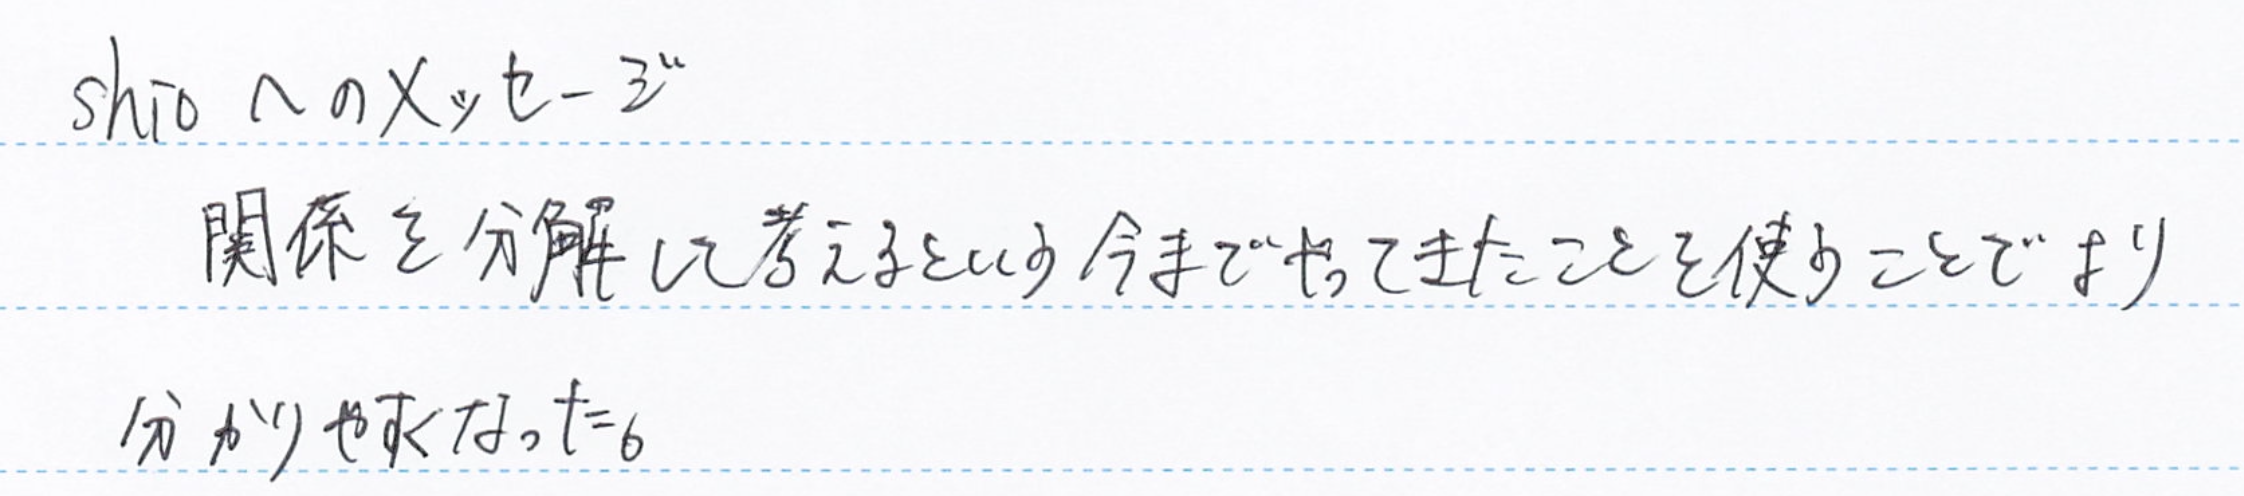 shioへのメッセージ
関係を分解して考えるという今までやってきたことを使うことでより
分かりやすくなった。